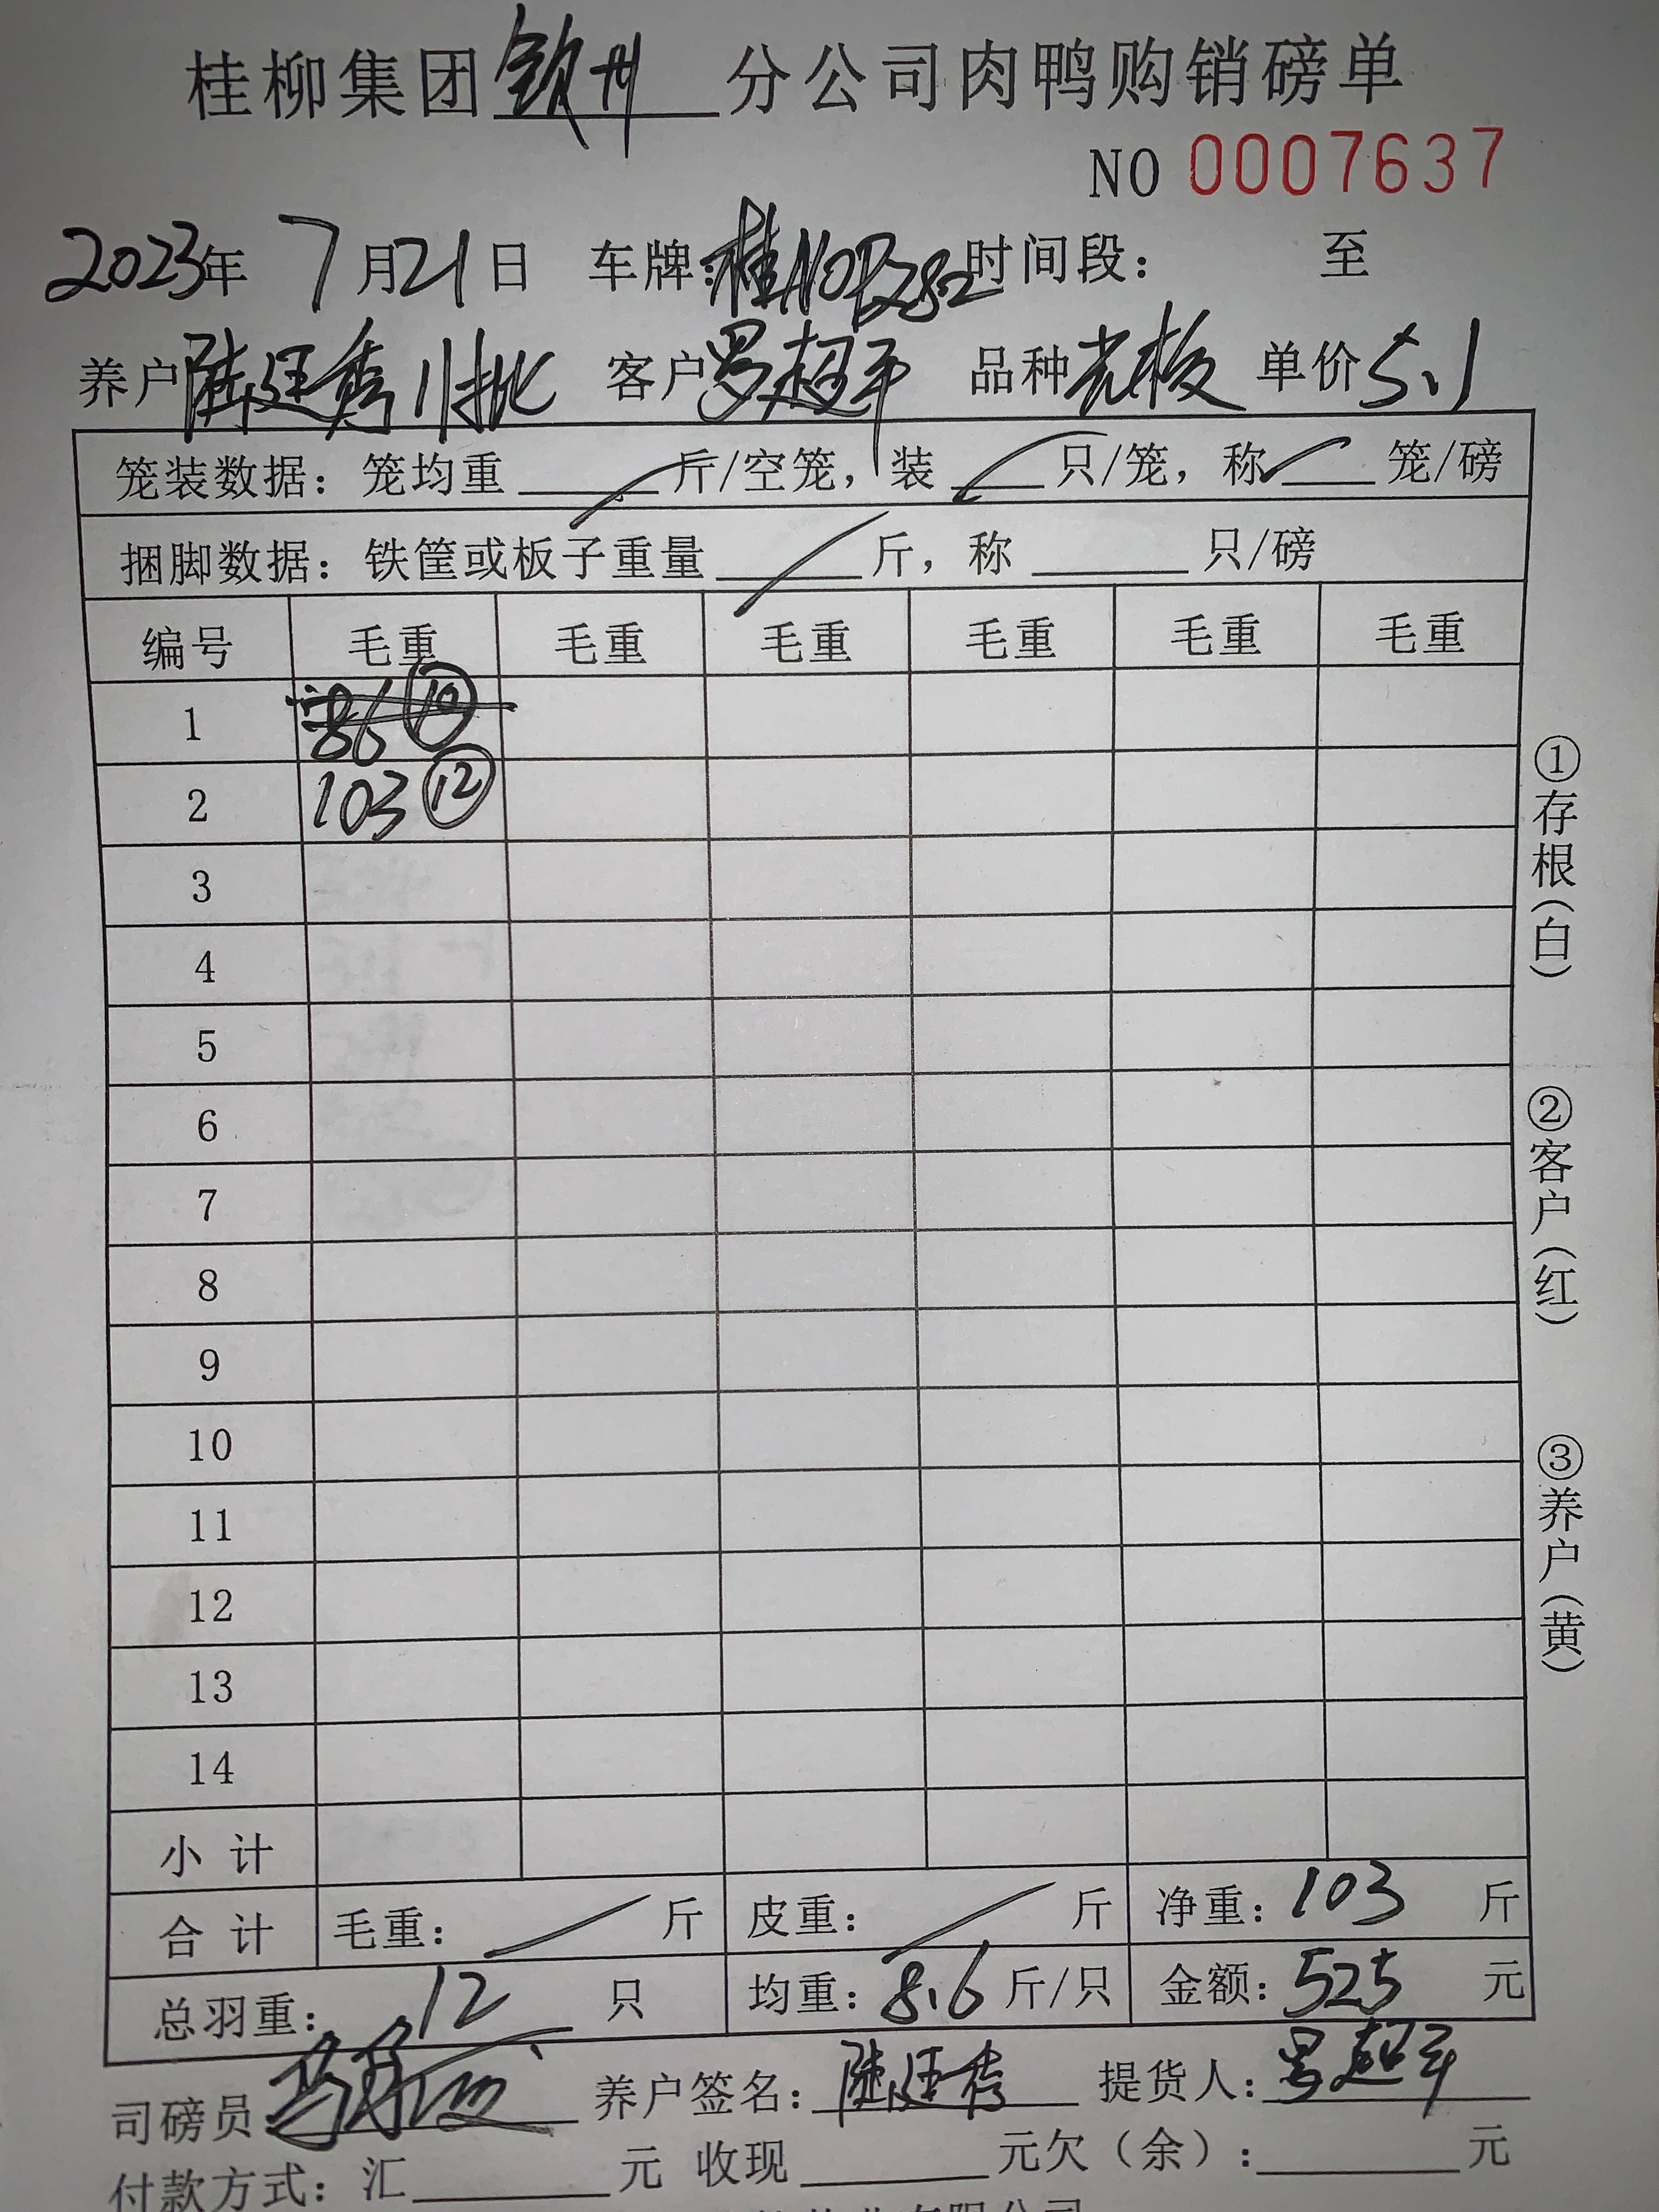 桂柳集团钦州分公司肉鸭购销磅单
NO 0007637
2023年 7月21日 车牌:桂N0P282 时间段: 至
养户陆廷秀11批 客户罗超平 品种老板 单价5.1
笼装数据: 笼均重____斤/空笼, 装____只/笼, 称____笼/磅
捆脚数据: 铁筐或板子重量____斤, 称____只/磅
编号 毛重 毛重 毛重 毛重 毛重 毛重
1 86 ⑩
2 103 ⑫
3
4
5
6
7
8
9
10
11
12
13
14
小 计
合 计 毛重: 斤 皮重: 斤 净重: 103 斤
总羽重: 12 只 均重: 8.6 斤/只 金额: 525 元
司磅员 养户签名: 陆廷秀 提货人: 罗超平
付款方式: 汇____元 收现____元欠(余):____元
有限公司
①存根(白)
②客户(红)
③养户(黄)